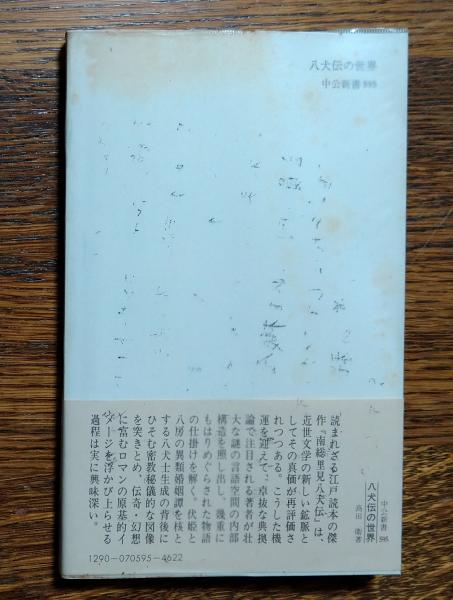 八犬伝の世界
中公新書 595
中公新書 595
八犬伝の世界
高田 衛著
読まれざる江戸読本の傑
作『南総里見八犬伝』は、
近世文学の新しい鉱脈と
してその真価が再評価さ
れつつある。こうした機
運を迎えて、卓抜な典拠
論で注目される著者が壮
大な謎の言語空間の内部
構造を照し出し、幾重に
もはりめぐらされた物語
の仕掛けを解く。伏姫と
八房の異類婚姻譚を核と
する八犬士生成の背後に
ひそむ密教秘儀的な図像
を突きとめ、伝奇・幻想
に富むロマンの原基的イ
メージを浮かび上らせる
過程は実に興味深い。
1290-070595-4622